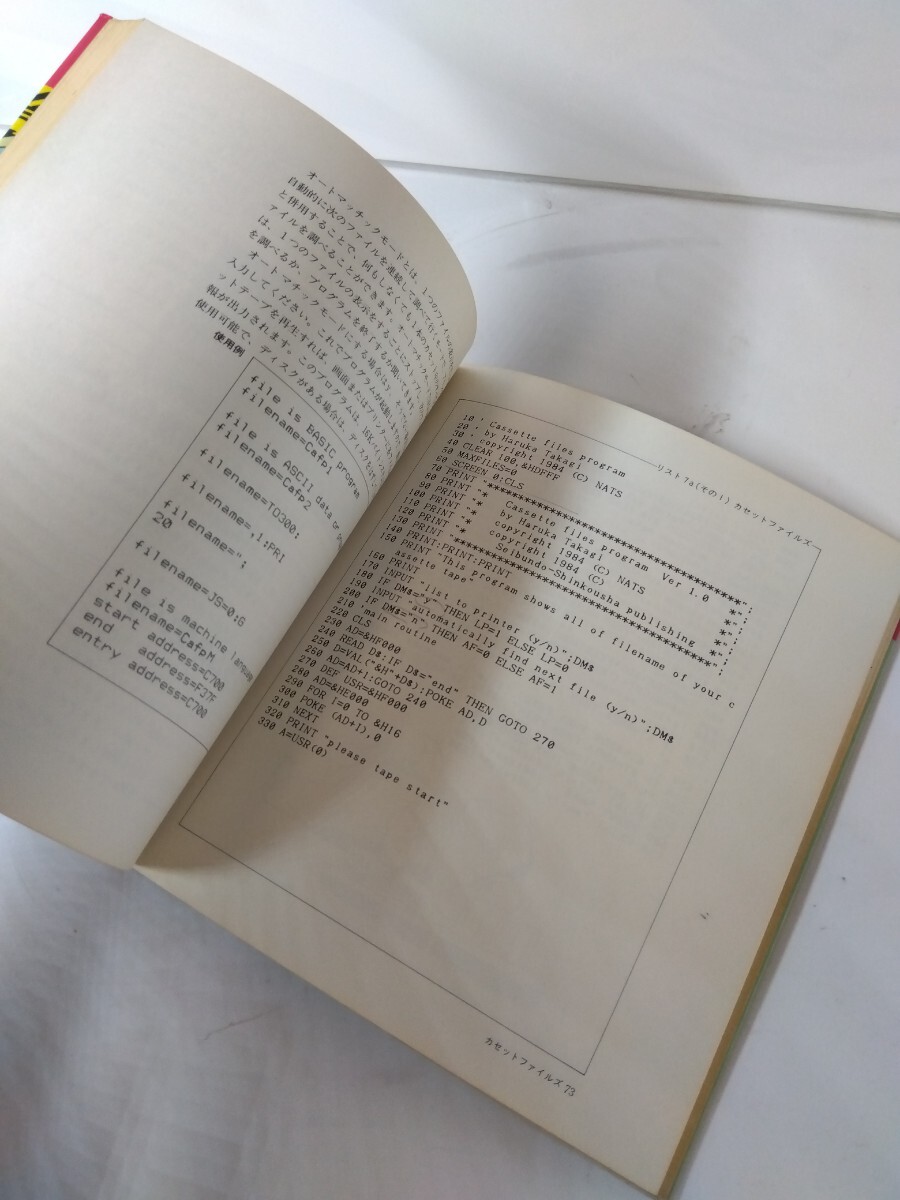 オートマッチックモードとは、1つのファイル
自動的に次のファイルを連続して調べて行く
と併用することで、何もしなくても1本の
ァイルを調べることができます。オートマチック
は、1つのファイルの表示をすることにストップ
を調べるか、プログラムを終了するか聞いてきます。
オートマチックモードにする場合は
入力してください。これでプログラムが起動し
ットテープを再生すれば、画面またはプリンタ
報が出力されます。このプログラムは、16K
使用可能で、ディスクがある場合は、ディスク
使用例
file is BASIC program
filename=Cafp1
file is ASCII data or
filename=Cafp2
filename=TO300:
filename= ,1:PRI
filename=";
20
filename=JS=0:G
file is machine langua
filename=CafpM
start address=C700
end address=F37F
entry address=C700
リスト7a(その1) カセットファイルズ
10 ' Cassette files program
20 ' by Haruka Takagi
30 ' copyright 1984 (C) NATS
40 CLEAR 100,&HDFFF
50 MAXFILES=0
60 SCREEN 0:CLS
70 PRINT "************************************";
80 PRINT "* Cassette files program Ver 1.0 *";
90 PRINT "* by Haruka Takagi *";
100 PRINT "* copyright 1984 (C) NATS *";
110 PRINT "* copyright 1984 (C) *";
120 PRINT "* Seibundo-Shinkousha publishing *";
130 PRINT "************************************";
140 PRINT:PRINT:PRINT
150 PRINT "This program shows all of filename of your c
assette tape"
160 PRINT
170 INPUT "list to printer (y/n)";DM$
180 IF DM$="y" THEN LP=1 ELSE LP=0
190 INPUT "automatically find next file (y/n)";DM$
200 IF DM$="n" THEN AF=0 ELSE AF=1
210 ' main routine
220 CLS
230 AD=&HF000
240 READ D$:IF D$="end" THEN GOTO 270
250 D=VAL("&H"+D$):POKE AD,D
260 AD=AD+1:GOTO 240
270 DEF USR=&HF000
280 AD=&HE000
290 FOR I=0 TO &H16
300 POKE (AD+I),0
310 NEXT
320 PRINT "please tape start"
330 A=USR(0)
カセットファイルズ 73